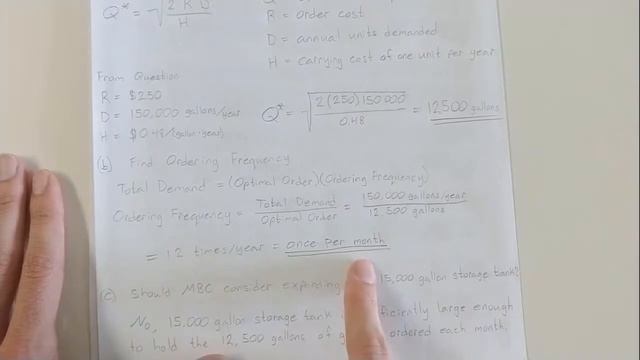 Q* = √(2 R D / H)
R = order cost
D = annual units demanded
H = carrying cost of one unit per year
From Question
R = $250
D = 150,000 gallons/year
H = $0.48/(gallon·year)
Q* = √(2(250)150 000 / 0.48) = 12500 gallons
(b) Find Ordering Frequency
Total Demand = (Optimal Order)(Ordering Frequency)
Ordering Frequency = Total Demand / Optimal Order = 150,000 gallons/year / 12 500 gallons
= 12 times/year = once per month
(c) Should MBC consider expanding 15,000 gallon storage tank?
No, 15,000 gallon storage tank large enough
to hold the 12,500 gallons of ordered each month.